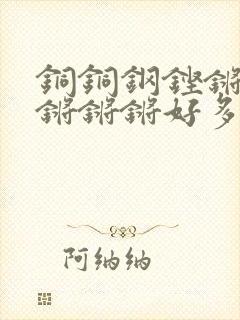 銅銅鋼鏗鏘
鏘鏘鏘好多
阿纳纳